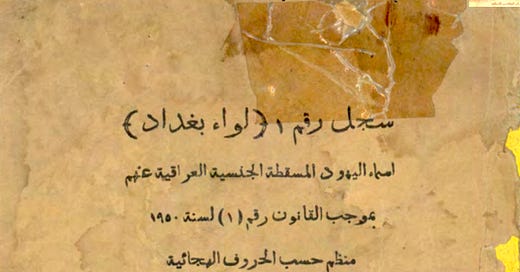 سجل رقم ١ ﴿لواء بغداد﴾
اسماء اليهود المسقطة الجنسية العراقية عنهم
بموجب القانون رقم (١) لسنة ١٩٥٠
منظم حسب الحروف الهجائية